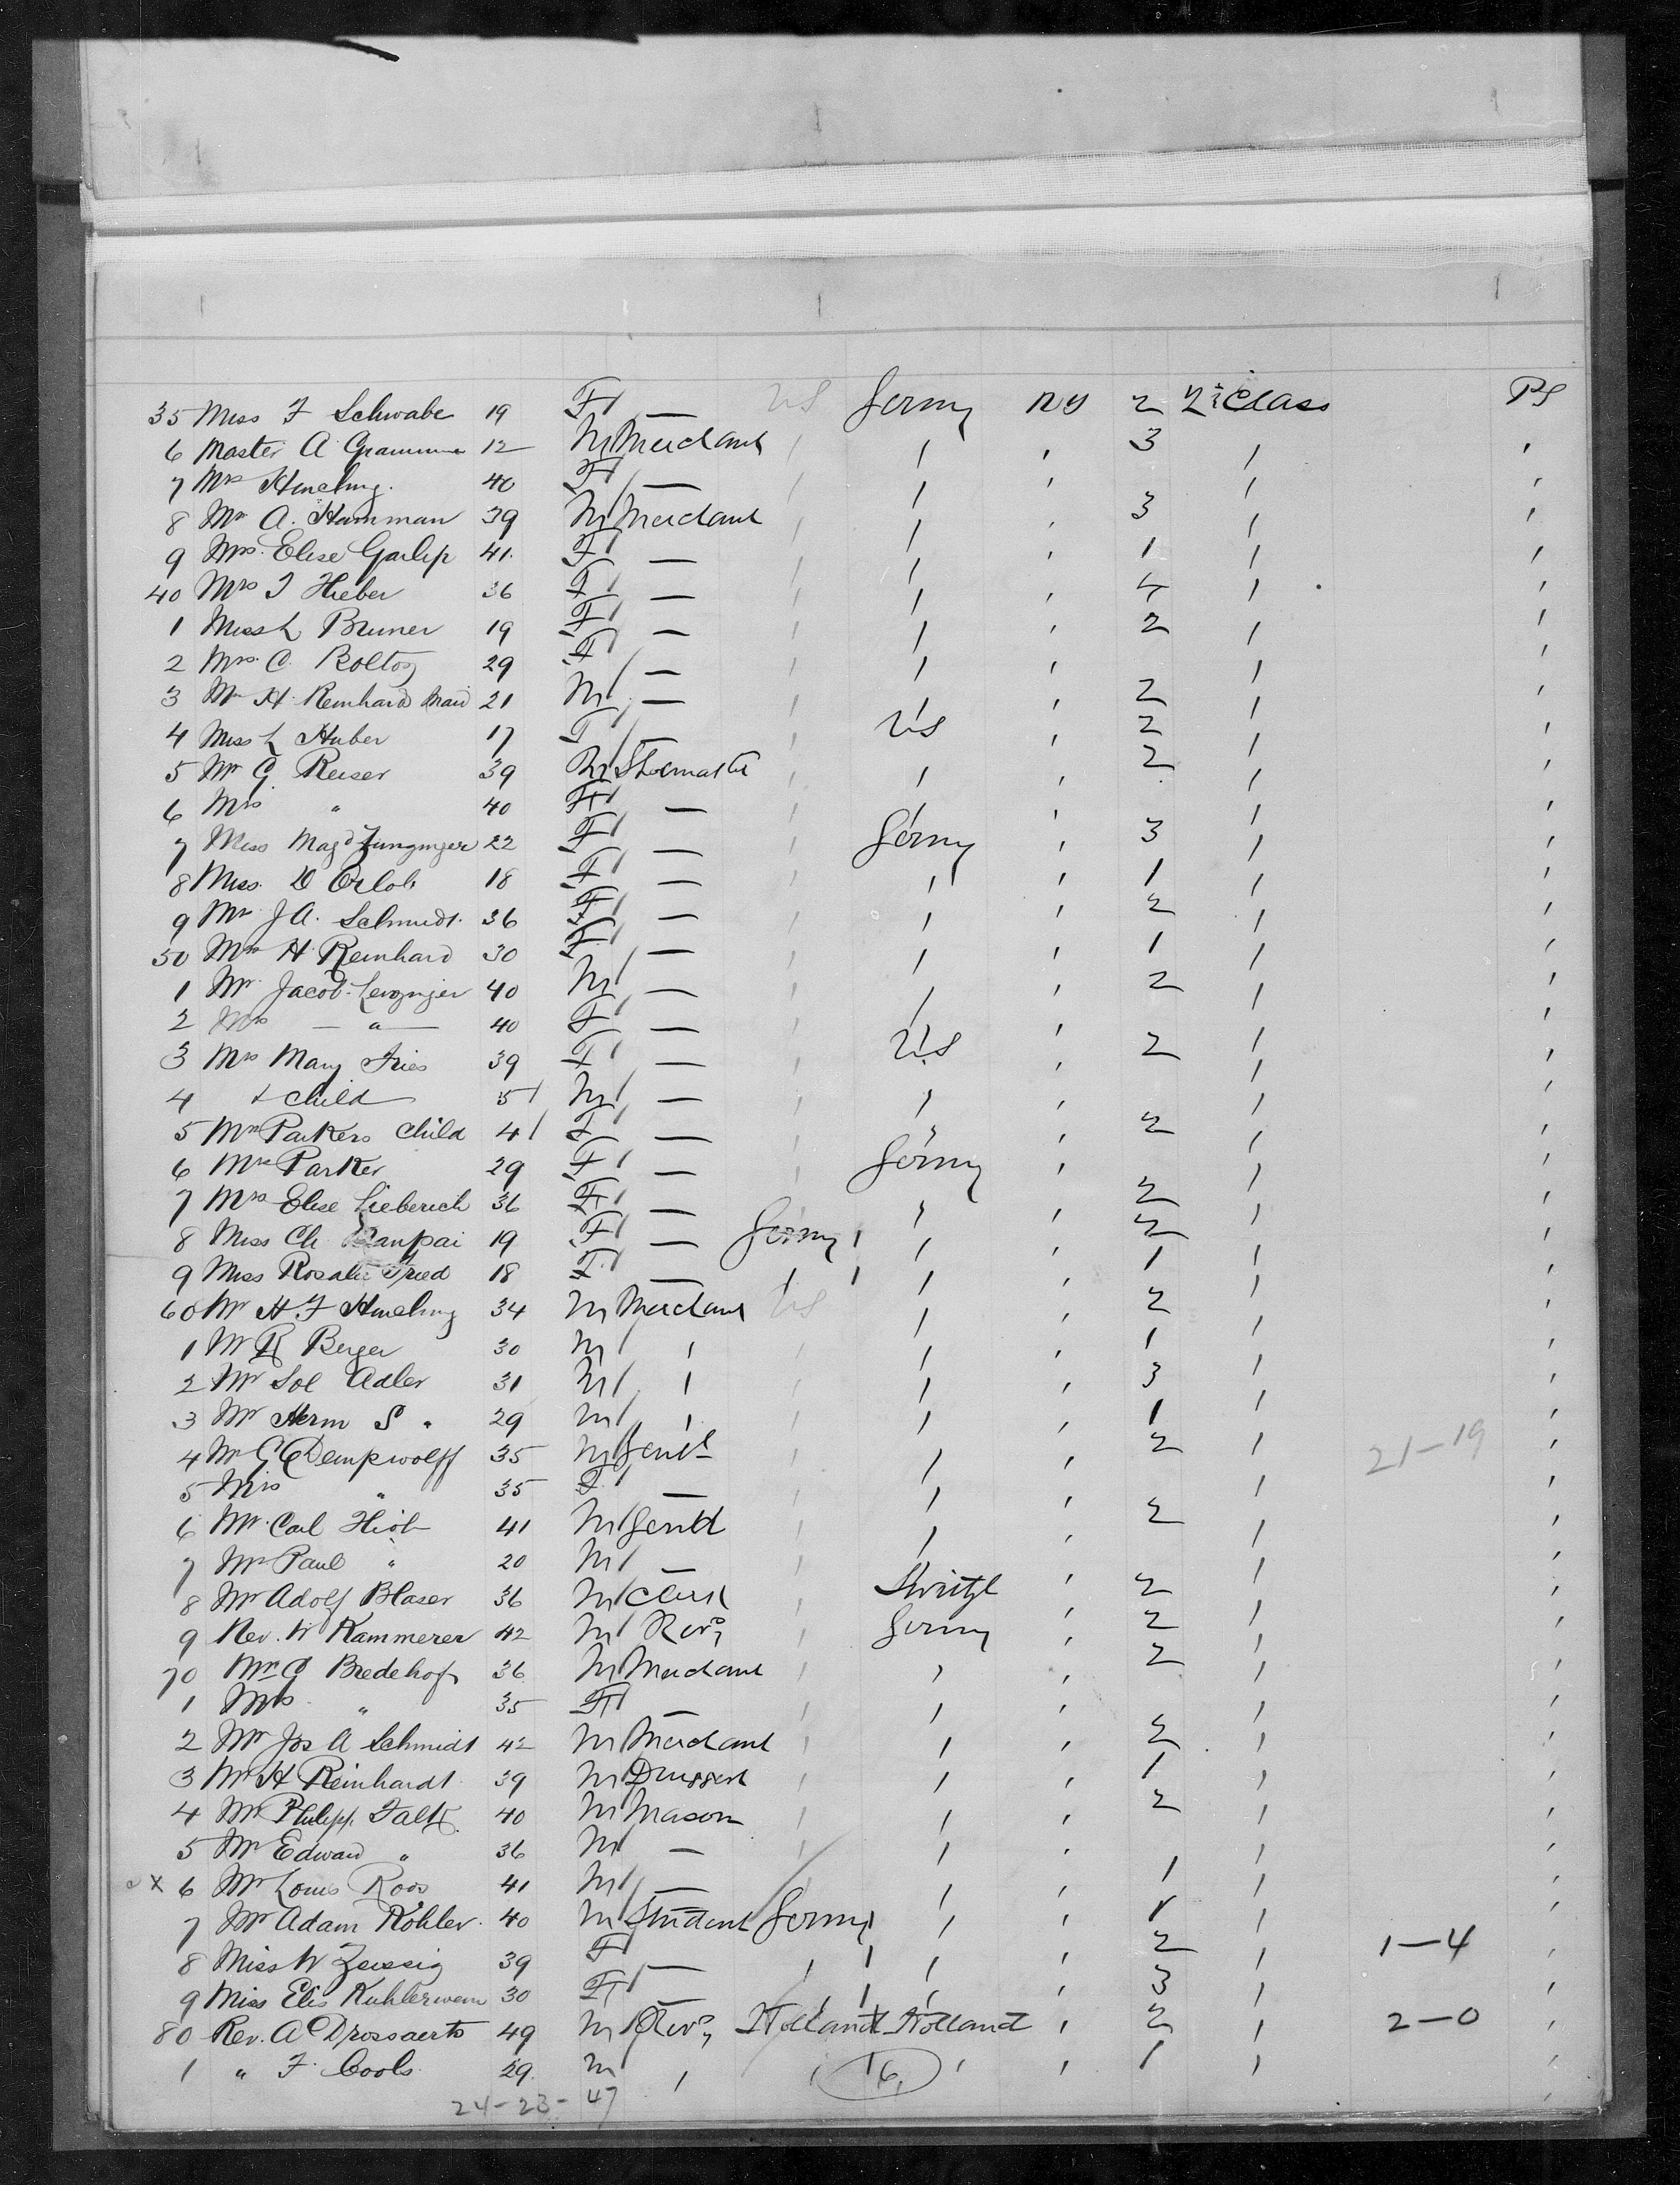 35 Miss F Schwabe 19 F — US Germy NY 2 2 Class PS
6 Master A Gramm 12 M Merchant ' ' ' 3 ' '
7 Mrs 40 F — ' ' ' ' '
8 Mr A. Hamman 39 M Merchant ' ' ' 3 ' '
9 Mrs. Elise Garlip 41 F — ' ' ' 1 ' '
40 Mrs J Hieber 36 F — ' ' ' 4 ' '
1 Miss L Bruner 19 F — ' ' ' 2 ' '
2 Mrs. C. 29 F — ' ' ' ' '
3 Mr H. Reinhard 21 M — ' ' ' 2 ' '
4 Miss L Huber 17 F — ' US ' 2 ' '
5 Mr G Reiser 39 M Shoemaker ' ' ' 2 ' '
6 Mrs " 40 F — ' ' ' ' '
7 Miss Magd Junginger 22 F — ' Germy ' 3 ' '
8 Miss D Orlob 18 F — ' ' ' 1 ' '
9 Mrs J A. Schmidt 36 F — ' ' ' 2 ' '
50 Mrs H. Reinhard 30 F — ' ' ' 1 ' '
1 Mr Jacob 40 M — ' ' ' 2 ' '
2 Mrs — " — 40 F — ' ' ' ' '
3 Mrs Mary Fries 39 F — ' US ' 2 ' '
4 + child 5 M — ' ' ' ' '
5 Mrs Parkers Child 4 F — ' ' ' 2 ' '
6 Mrs Parker 29 F — ' Germy ' ' '
7 Mrs Elise Lieberich 36 F — ' ' 2 ' '
8 Miss Ch 19 F — Germy ' ' 2 ' '
9 Miss Rosalie Fried 18 F — ' ' ' 1 ' '
60 Mr H. F 34 M Merchant US ' ' 2 ' '
1 Mr R Berger 30 M ' ' ' ' 1 ' '
2 Mr Sol Adler 31 M ' ' ' ' 3 ' '
3 Mr Herm S " 29 M ' ' ' ' 1 ' '
4 Mr C C Dempwolff 35 M Gentl ' ' ' 2 ' 21-19 '
5 Mrs " 35 F — ' ' ' ' '
6 Mr. Carl Hiob 41 M Gentl ' ' ' 2 ' '
7 Mr Paul " 20 M — ' ' ' ' '
8 Mr Adolf Blaser 36 M Clerk ' Switzl ' 2 ' '
9 Rev. W Kammerer 42 M Revd ' Germy ' 2 ' '
70 Mr G Bredehoft 36 M Merchant ' ' ' 2 ' '
1 Mrs " 35 F — ' ' ' ' '
2 Mr Jos A Schmidt 42 M Merchant ' ' ' 2 ' '
3 Mr H Reinhardt 39 M Druggist ' ' ' 1 ' '
4 Mr Philipp Faltz 40 M Mason ' ' ' 2 ' '
5 Mr Edward " 36 M — ' ' ' ' '
x 6 Mr Louis Roos 41 M — ' ' ' 1 ' '
7 Mr Adam Köhler 40 M Student Germy ' ' 1 ' '
8 Miss W Zeissig 39 F — ' ' ' 2 ' 1-4 '
9 Miss Elis 30 F — ' ' ' 3 ' '
80 Rev. A Drossaerts 49 M Revd Holland Holland ' 2 ' 2-0 '
1 " F. Cools 29 M ' ' 16 ' ' 1 ' '
24-23-47